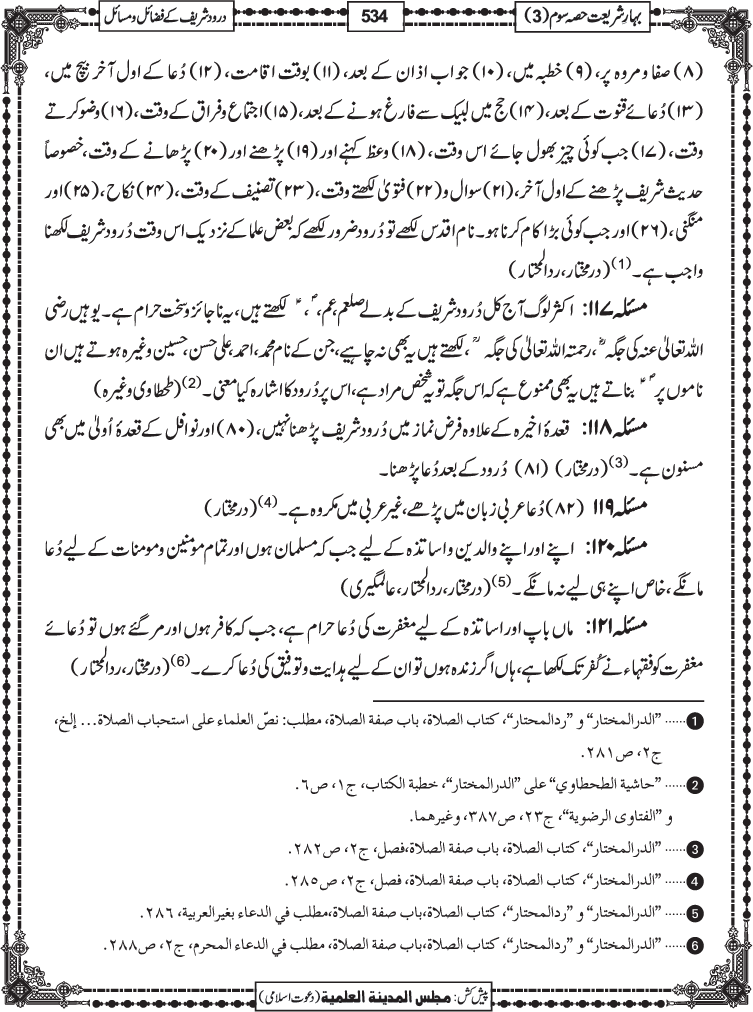 بہارِ شریعت حصہ سوم (3)
534
درود شریف کے فضائل و مسائل
(۸) صفا و مروہ پر، (۹) خطبہ میں، (۱۰) جواب اذان کے بعد، (۱۱) بوقت اقامت، (۱۲) دُعا کے اول آخر بیچ میں،
(۱۳) دُعائے قنوت کے بعد، (۱۴) حج میں لبیک سے فارغ ہونے کے بعد، (۱۵) اجتماع و فراق کے وقت، (۱۶) وضو کرتے
وقت، (۱۷) جب کوئی چیز بھول جائے اس وقت، (۱۸) وعظ کہنے اور (۱۹) پڑھنے اور (۲۰) پڑھانے کے وقت، خصوصاً
حدیث شریف پڑھنے کے اول آخر، (۲۱) سوال و (۲۲) فتویٰ لکھتے وقت، (۲۳) تصنیف کے وقت، (۲۴) نکاح، (۲۵) اور
منگنی، (۲۶) اور جب کوئی بڑا کام کرنا ہو۔ نام اقدس لکھے تو دُرود ضرور لکھے کہ بعض علما کے نزدیک اس وقت دُرود شریف لکھنا
واجب ہے۔ (1) (درمختار، ردالمحتار)
مسئلہ ۱۱۷: اکثر لوگ آج کل دُرود شریف کے بدلے صلعم، عم، ؐ، ؑ لکھتے ہیں، یہ ناجائز و سخت حرام ہے۔ یوہیں رضی
اللہ تعالیٰ عنہ کی جگہ ؓ، رحمتہ اللہ تعالیٰ کی جگہ ؒ، لکھتے ہیں یہ بھی نہ چاہیے، جن کے نام محمد، احمد، علی حسن، حسین وغیرہ ہوتے ہیں ان
ناموں پر ؐ ؑ بناتے ہیں یہ بھی ممنوع ہے کہ اس جگہ تو یہ شخص مراد ہے، اس پر دُرود کا اشارہ کیا معنی۔ (2) (طحطاوی وغیرہ)
مسئلہ ۱۱۸: قعدۂ اخیرہ کے علاوہ فرض نماز میں دُرود شریف پڑھنا نہیں، (۸۰) اور نوافل کے قعدۂ اُولیٰ میں بھی
مسنون ہے۔ (3) (درمختار) (۸۱) دُرود کے بعد دُعا پڑھنا۔
مسئلہ ۱۱۹ (۸۲) دُعا عربی زبان میں پڑھے، غیر عربی میں مکروہ ہے۔ (4) (درمختار)
مسئلہ ۱۲۰: اپنے اور اپنے والدین و اساتذہ کے لیے جب کہ مسلمان ہوں اور تمام مومنین و مومنات کے لیے دُعا
مانگے، خاص اپنے ہی لیے نہ مانگے۔ (5) (درمختار، ردالمحتار، عالمگیری)
مسئلہ ۱۲۱: ماں باپ اور اساتذہ کے لیے مغفرت کی دُعا حرام ہے، جب کہ کافر ہوں اور مر گئے ہوں تو دُعائے
مغفرت کو فقہاء نے کُفر تک لکھا ہے، ہاں اگر زندہ ہوں تو ان کے لیے ہدایت و توفیق کی دُعا کرے۔ (6) (درمختار، ردالمحتار)
1 ...... "الدرالمختار" و "ردالمحتار"، كتاب الصلاة، باب صفة الصلاة، مطلب: نصّ العلماء على استحباب الصلاة... إلخ،
ج٢، ص٢٨١.
2 ...... "حاشية الطحطاوي" على "الدرالمختار"، خطبة الكتاب، ج١، ص٦.
و "الفتاوى الرضوية"، ج٢٣، ص٣٨٧، وغيرهما.
3 ...... "الدرالمختار"، كتاب الصلاة، باب صفة الصلاة،فصل، ج٢، ص٢٨٢.
4 ...... "الدرالمختار"، كتاب الصلاة، باب صفة الصلاة، فصل، ج٢، ص٢٨٥.
5 ...... "الدرالمختار" و "ردالمحتار"، كتاب الصلاة،باب صفة الصلاة،مطلب في الدعاء بغيرالعربية، ٢٨٦.
6 ...... "الدرالمختار" و "ردالمحتار"، كتاب الصلاة،باب صفة الصلاة، مطلب في الدعاء المحرم، ج٢، ص٢٨٨.
پیش کش: مجلس المدینة العلمیة (دعوت اسلامی)